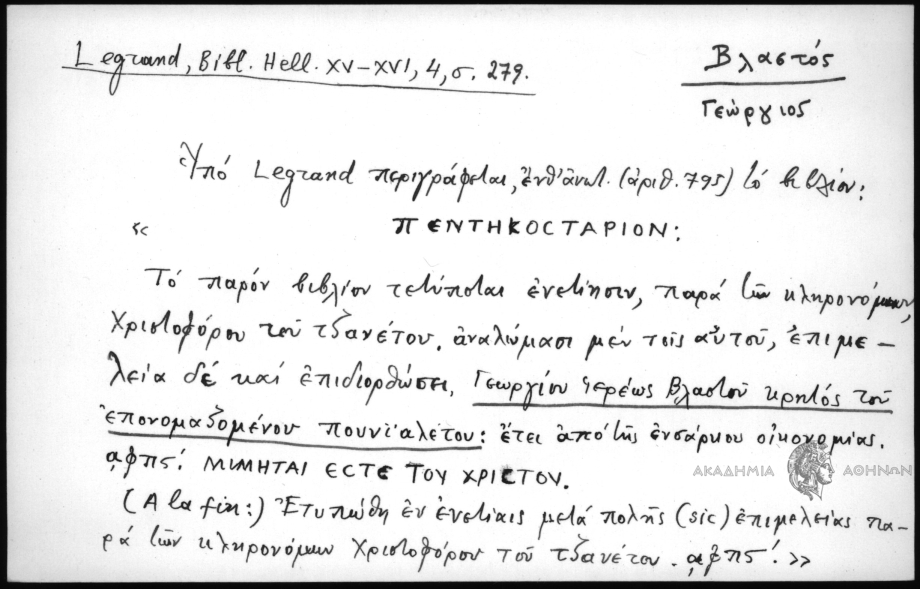 Legrand, Bibl. Hell. XV-XVI, 4, σ. 279.
Βλαστός
Γεώργιος
Ὑπό Legrand περιγράφεται, ἔνθ' ἀνωτ. (ἀριθ. 795) τό βιβλίον:
«
ΠΕΝΤΗΚΟCΤΑΡΙΟΝ:
Τό παρόν βιβλίον τετύπωται ἐνετίησιν, παρά τῶν κληρονόμων,
Χριστοφόρου τοῦ τζανέτου. ἀναλώμασι μέν τοῖς αὐτοῦ, ἐπιμε-
λεία δέ καί ἐπιδιορθώσει, Γεωργίου ἱερέως Βλαστοῦ κρητός τοῦ
ἐπονομαζομένου πουνιαλέτου: ἔτει ἀπό τῆς ἐνσάρκου οἰκονομίας.
͵αφπς΄. ΜΙΜΗΤΑΙ ΕCΤΕ ΤΟΥ ΧΡΙCΤΟΥ.
ΑΚΑΔΗΜΙΑ ΑΘΗΝΩΝ
(A la fin:) Ἐτυπώθη ἐν ἐνετίαις μετά πολῆς (sic) ἐπιμελείας πα-
ρά τῶν κληρονόμων Χριστοφόρου τοῦ τζανέτου. ͵αφπς΄.»